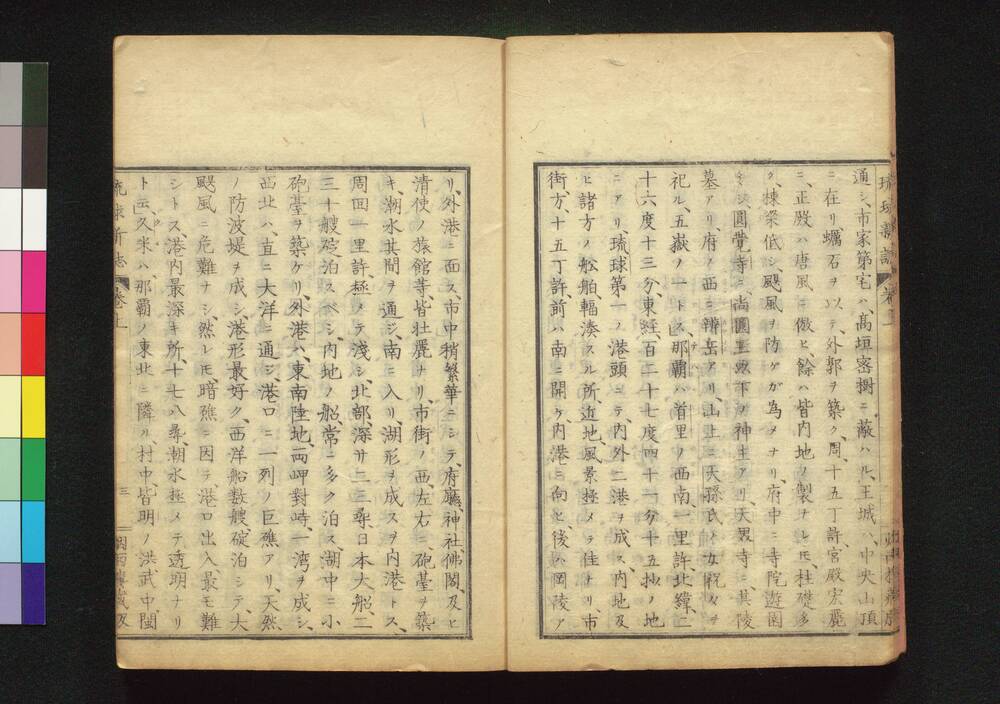 通シ、市家第宅ハ、高垣密樹ニ蔽ハル、王城ハ、中央山頂
ニ在リ、蠣石ヲ以テ、外郭ヲ築ク、周十五丁許、宮殿宏麗
ニ、正殿ハ唐風ニ倣ヒ、餘ハ皆内地ノ製ナレ𪜈、柱礎多
ク、棟梁低シ、颶風ヲ防グガ為ヲナリ、府中ニ寺院遊園
多シ、圓覺寺ニ尚圓王以下ノ神主アリ、天界寺ニ其陵
墓アリ、府ノ西ニ辨岳アリ、山上ニ天孫氏ト女祝々ヲ
祀ル、五嶽ノ一トス、那覇ハ首里ノ西南一里許、北緯二
十六度十三分、東経百二十七度四十一分十五抄ノ地
ニアリ、琉球第一ノ港頭ニテ、内外二港ヲ成ス、内地及
ヒ諸方ノ舩舶、輻湊スル所、近地風景極メテ佳ナリ、市
街方十五丁許、前ハ南ニ開ケ、内港ニ向ヒ、後ハ岡陵ア
リ、外港ニ面ス、市中稍繁華ニシテ、府廳、神社、佛閣、及ヒ
清使ノ旅館等、皆壮麗ナリ、市街ノ西、左右ニ砲臺ヲ築
キ、潮水其間ヲ通シ、南ニ入リ、湖形ヲ成スヲ内港トス、
周回一里許、極メテ淺シ、北部深サ二三尋、日本大船二
三十艘碇泊スヘシ、内地ノ船常ニ多ク泊ス、湖中ニ小
砲臺ヲ築ケリ、外港ハ、東南陸地、両岬對峙、一湾ヲ成シ、
西北ハ、直ニ大洋ニ通シ、港口ニ一列ノ巨礁アリ、天然
ノ防波堤ヲ成シ、港形最好ク、西洋船数艘、碇泊シテ、大
颶風ニ危難ナシ、然レ𪜈、暗礁ニ因テ、港口出入最モ難
シトス、港内最深キ所、十七八尋、潮水極メテ透明ナリ
ト云、久米ハ、那覇ノ東北ニ隣ル、村中皆明ノ洪武中、閩